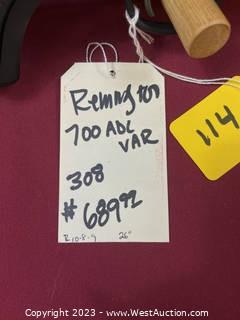 Remington
700 ADL
VAR
308
# 689.92
R 10-8-9 26"
114
Copyright 2023 - www.WestAuction.com